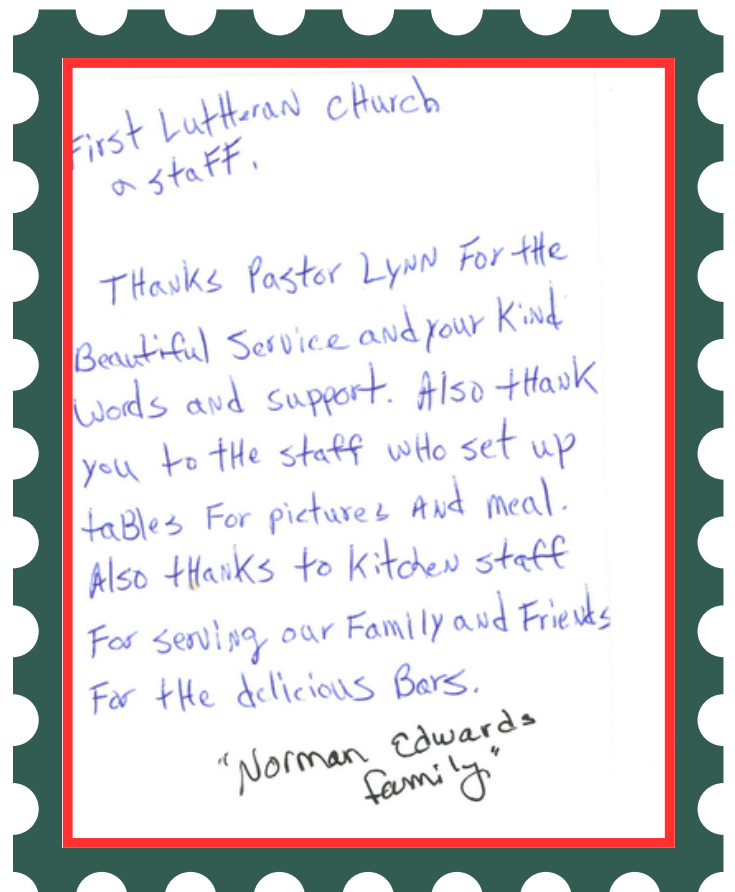 First Lutheran Church
a staff.
Thanks Pastor Lynn For the
Beautiful Service and your Kind
Words and support. Also thank
you to the staff who set up
tables For pictures And meal.
Also thanks to kitchen staff
For serving our Family and Friends
For the delicious Bars.
"Norman Edwards
family"